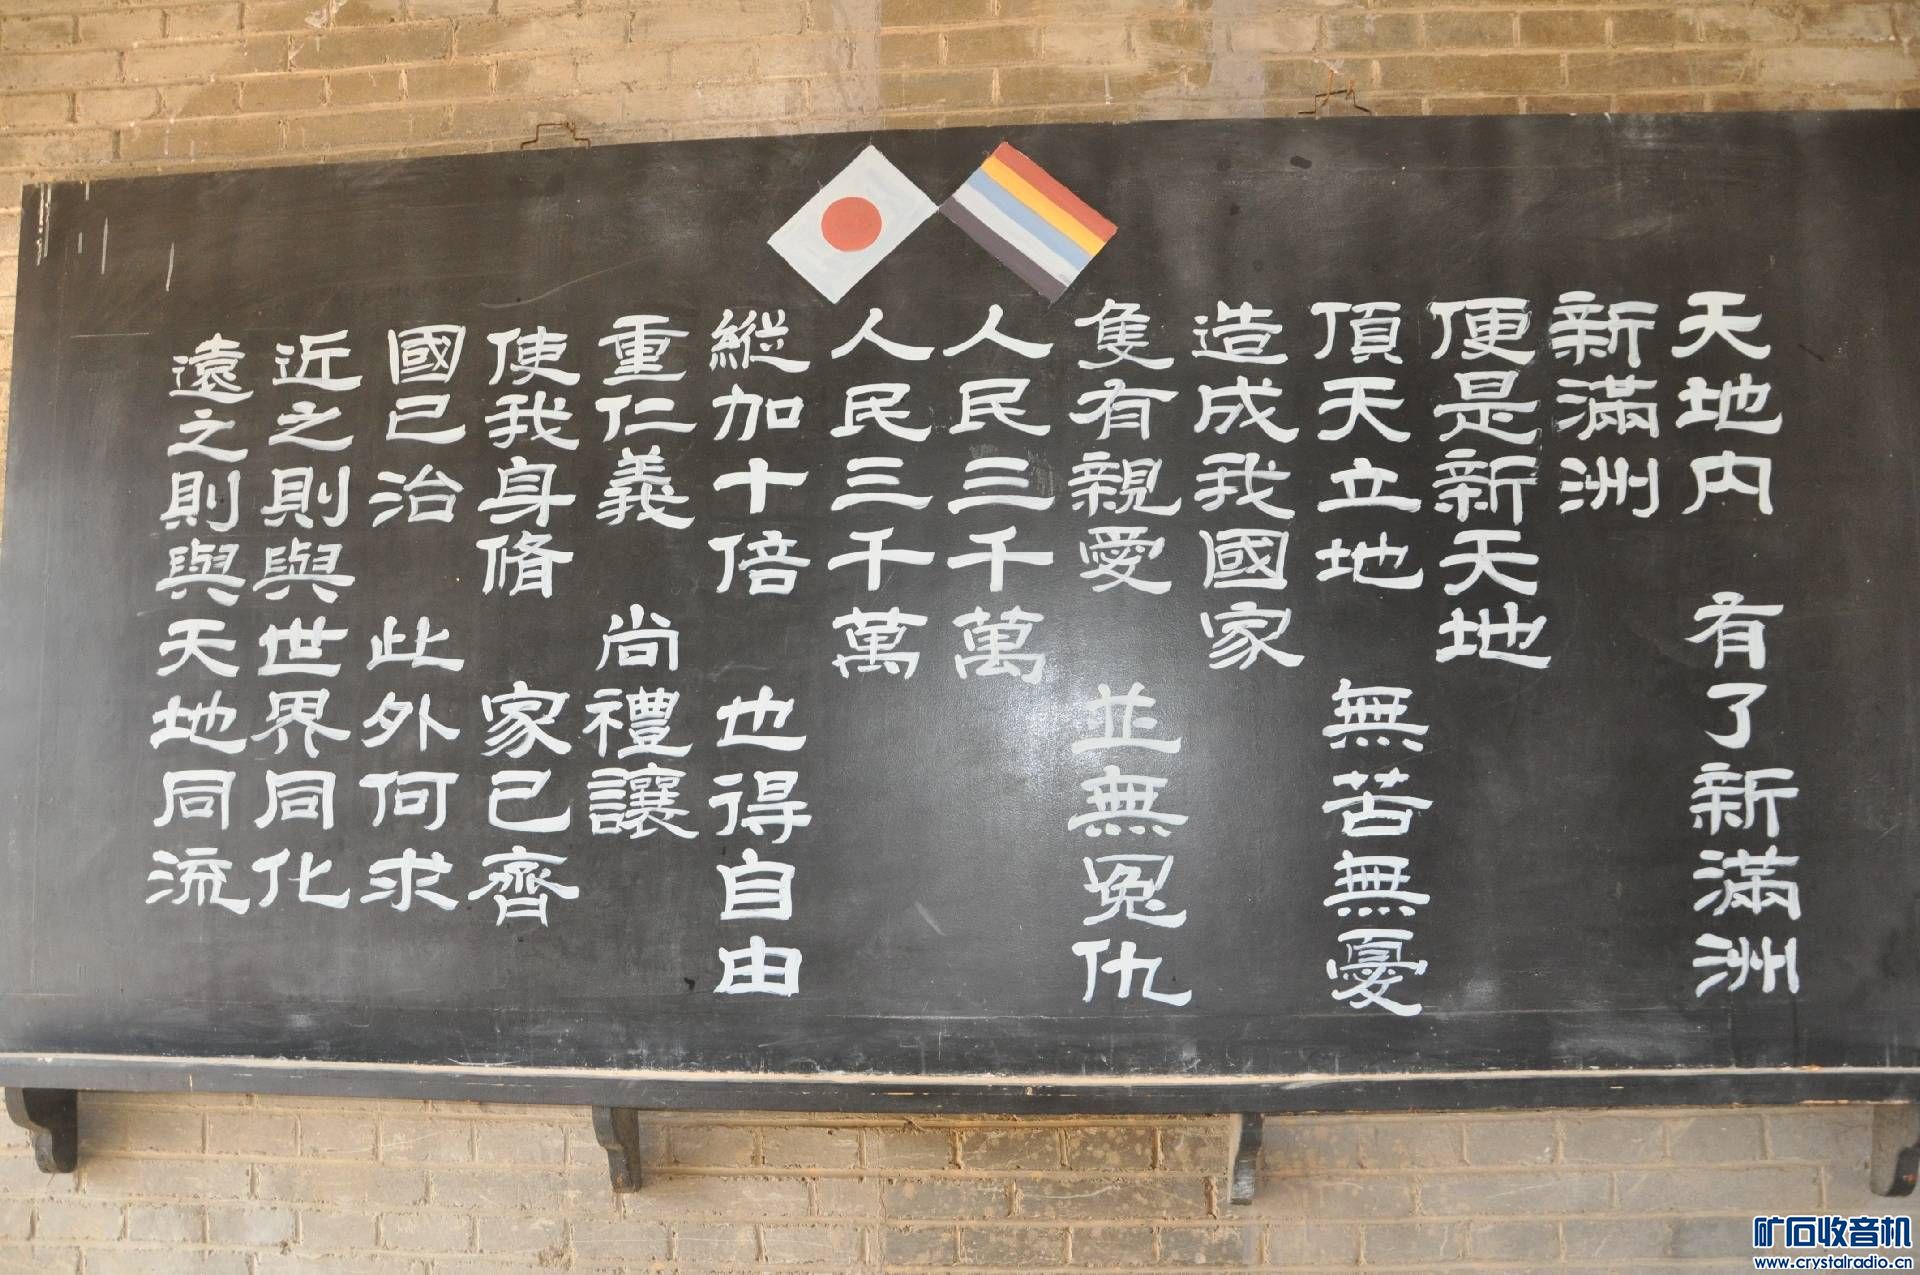 天地内 有了新滿洲
新滿洲
便是新天地
頂天立地 無苦無憂
造成我國家
隻有親愛 並無冤仇
人民三千萬
人民三千萬
縱加十倍 也得自由
重仁義 尚禮讓
使我身脩 家已齊
國已治 此外何求
近之則與世界同化
遠之則與天地同流
矿石收音机
www.crystalradio.cn